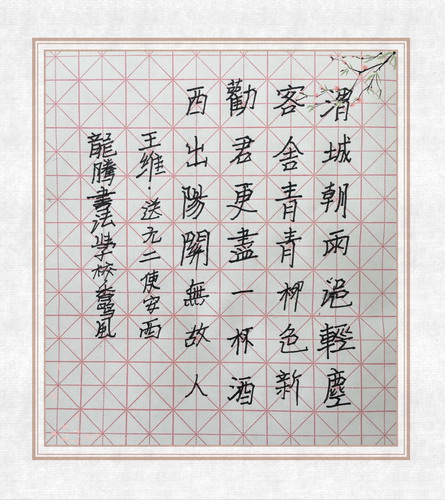 渭城朝雨浥輕塵
客舍青青柳色新
勸君更盡一杯酒
西出陽關無故人
王維·送元二使安西
龍騰書法學校風